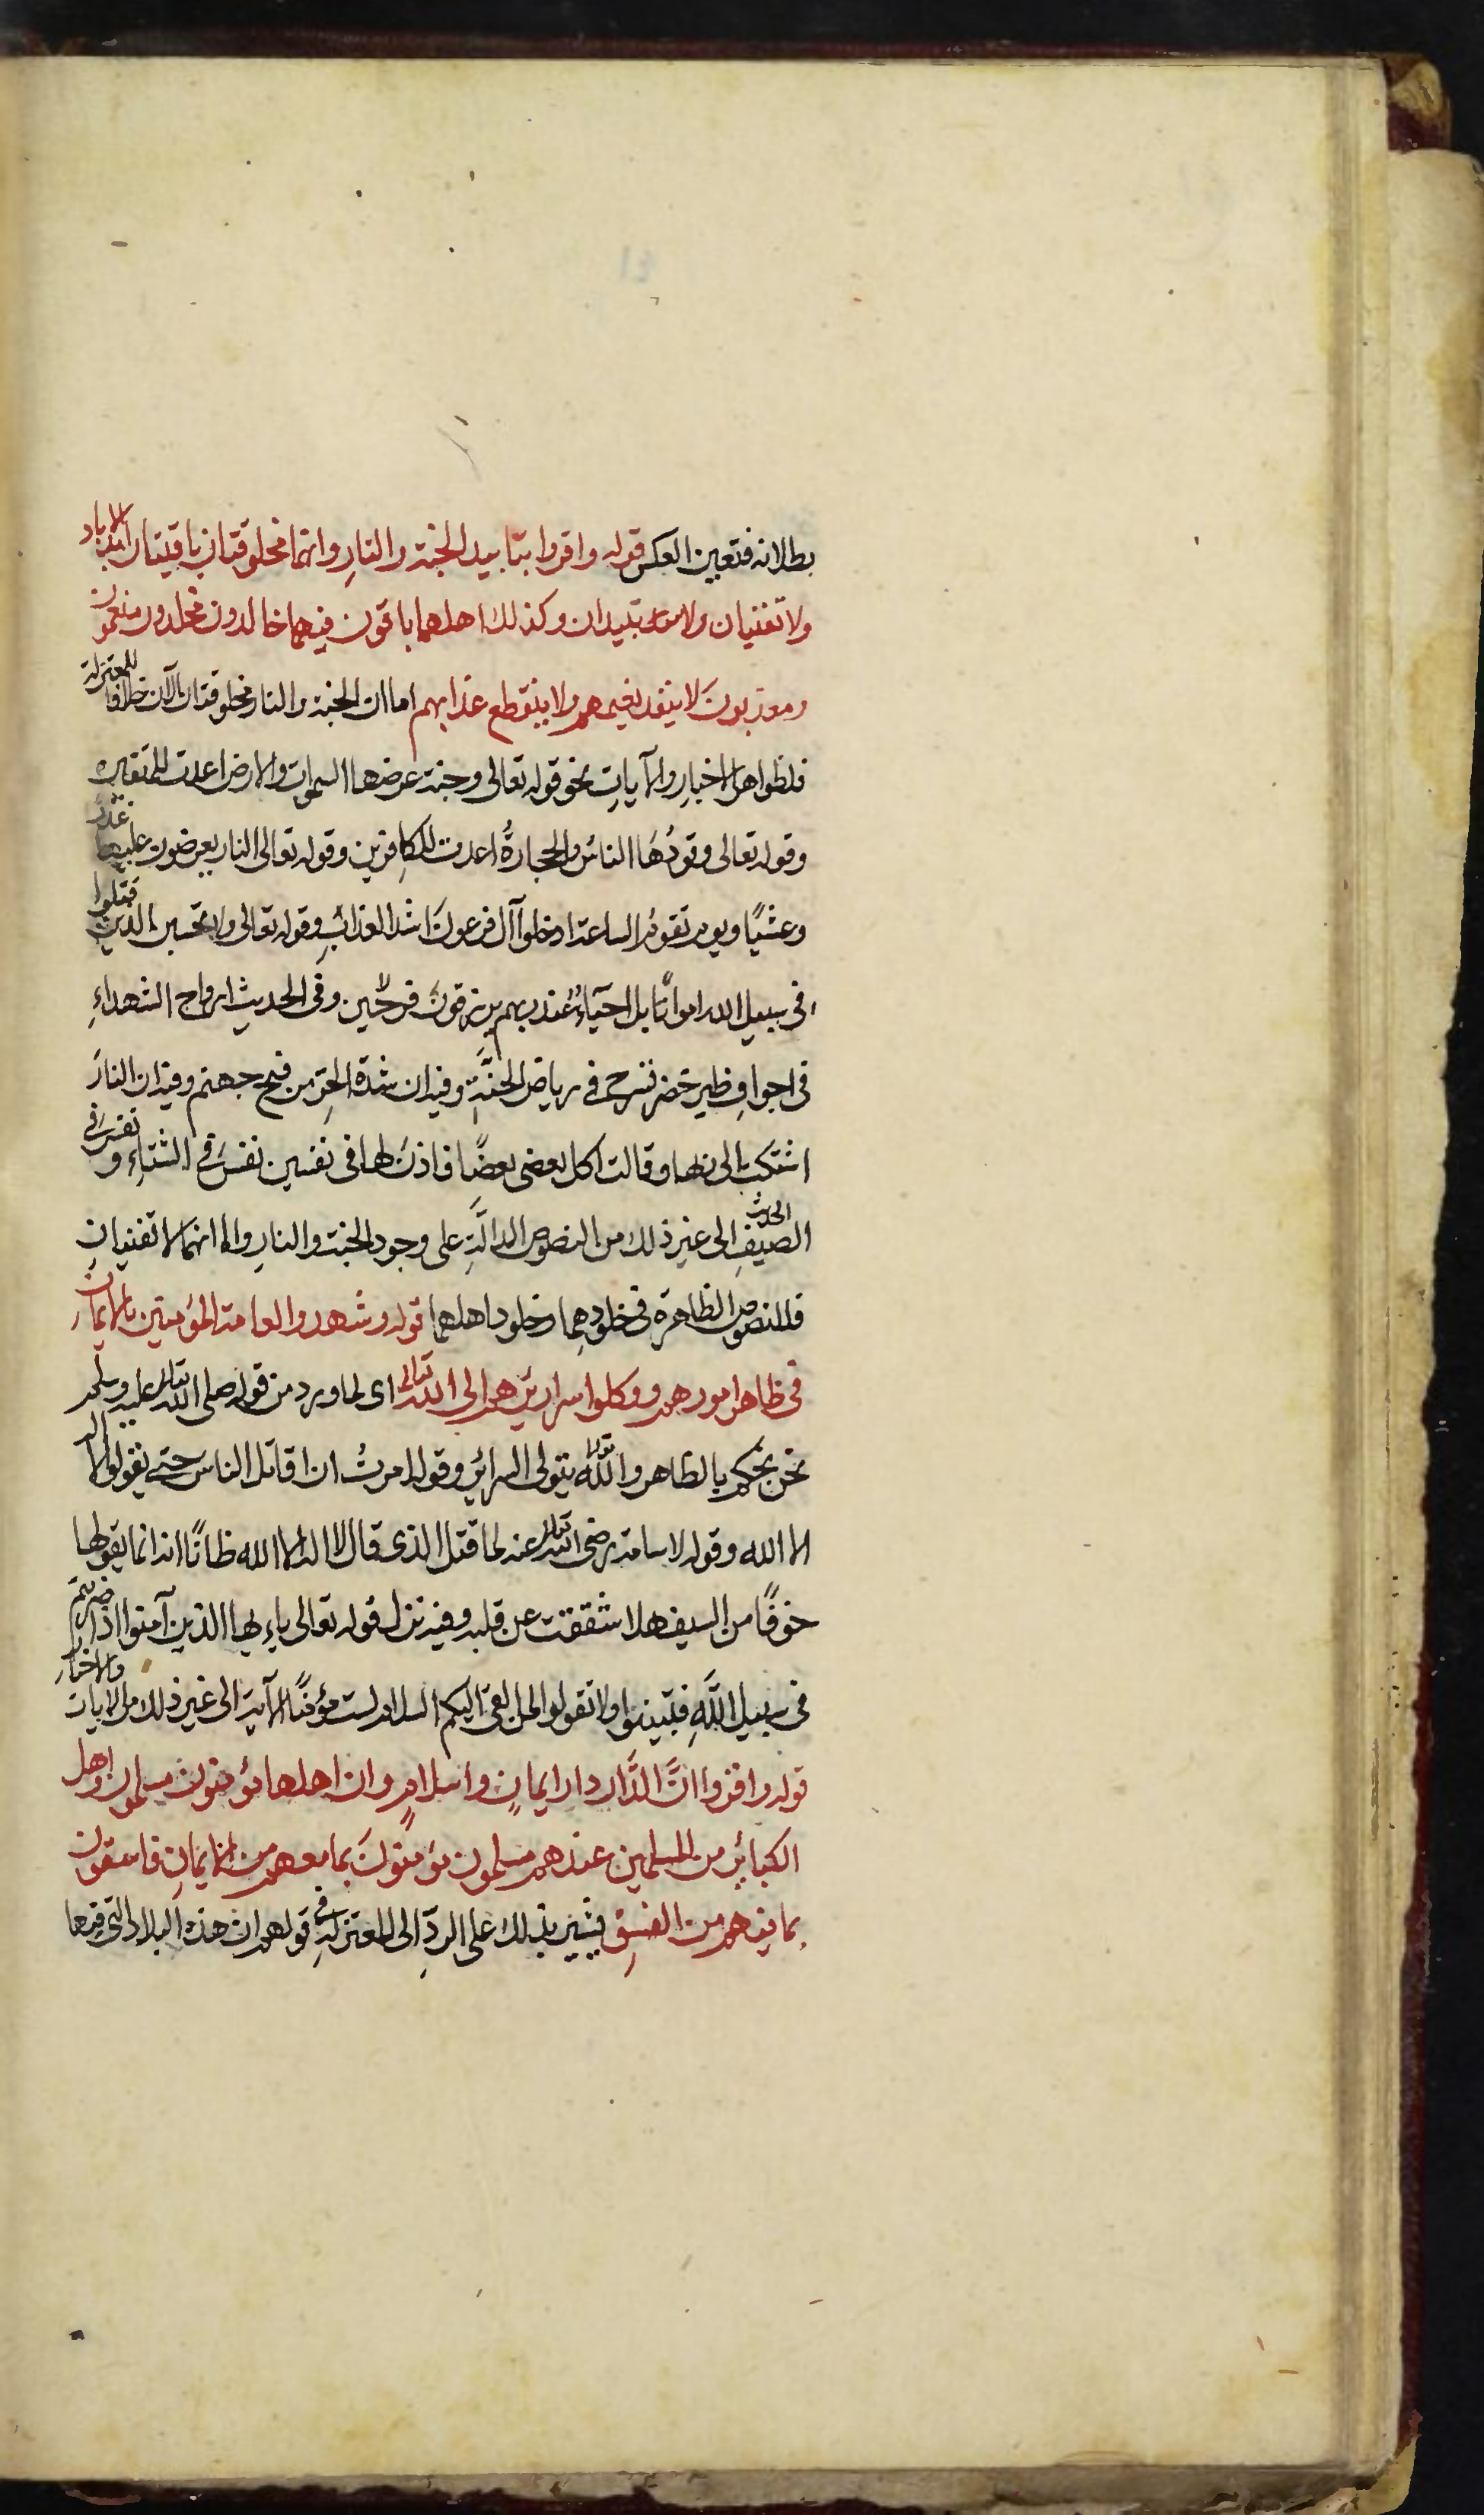 بطلانه فتعين العكس قوله واقروا بتابيد الجنة والنارِ وانهما مخلوقتان باقيتان ابد الاباد
ولا تفنيان ولا تبيدان وكذلك اهلهما باقون فيهما خالدون مخلدون منعمون
ومعذبونَ لا ينفد نعيمهم ولا ينقطع عذابهم اما ان الجنة والنار مخلوقتان الآن خلافا للمعتزلة
فلظواهر الاخبارِ والآياتِ نحو قوله تعالى وجنة عرضها السموات والارض اعدت للمتقين
وقوله تعالى وقودُهَا الناسُ والحجارةُ اعدت للكافرين وقوله تعالى النار يعرضون عليها غدوًّا
وعشيًا ويوم تقومُ الساعة ادخلوا آل فرعونَ اشد العذابِ وقوله تعالى ولا تحسبن الذين قتلوا
في سبيل الله امواتًا بل احيَاءٌ عند ربهم يرزقونَ فرحين وفى الحديث ارواح الشهداءِ
فى اجوافِ طير خضر تسرح فى رياض الجنَّةِ وفيه ان شدة الحرِّ من فيح جهنم وفيه ان النارَ
اشتكت الى ربها وقالت اكل بعضى بعضًا فاذنَ لها فى نفسين نفسَ فى الشتاءِ ونفسَ فى
الصيفِ الحديث الى غير ذلك من النصوص الدالَّةِ على وجود الجنة والنارِ واما انهما لا تفنيانِ
فللنصوص الظاهرة فى خلودِهما وخلود اهلهما قوله وشهدوا لعامة المؤمنين بالايمان
فى ظاهر امورهم ووكلوا سرائرهم الى الله تعالى اى لما ورد من قوله صلى الله تعالى عليه وسلم
نحن نحكم بالظاهر والله تعالى يتولى السرائر وقوله امرتُ ان اقاتل الناس حتى يقولوا لا اله
الا الله وقوله لاسامة رضى الله تعالى عنه لما قتل الذى قال لا اله الا الله ظانًّا انه انما يقولها
خوفًا من السيف هلا شققت عن قلبه وفيه نزل قوله تعالى ياءيها الذين آمنوا اذا ضربتم
فى سبيل اللَّهِ فتبينوا ولا تقولوا لمن القى اليكم السلام لست مؤمنًا الآية الى غير ذلك من الايات والاخبار
قوله واقروا انَّ الدَّار دار ايمانٍ واسلامٍ وان اهلها مؤمنون مسلمون واهل
الكبائرِ من المسلمين عندهم مسلمون مؤمنونَ بما معهم من الايمانِ فاسقون
بما فيهم من الفسقِ فيشير بذلك على الردِّ الى المعتزلةِ فى قولهم ان هذه البلاد التى فيها